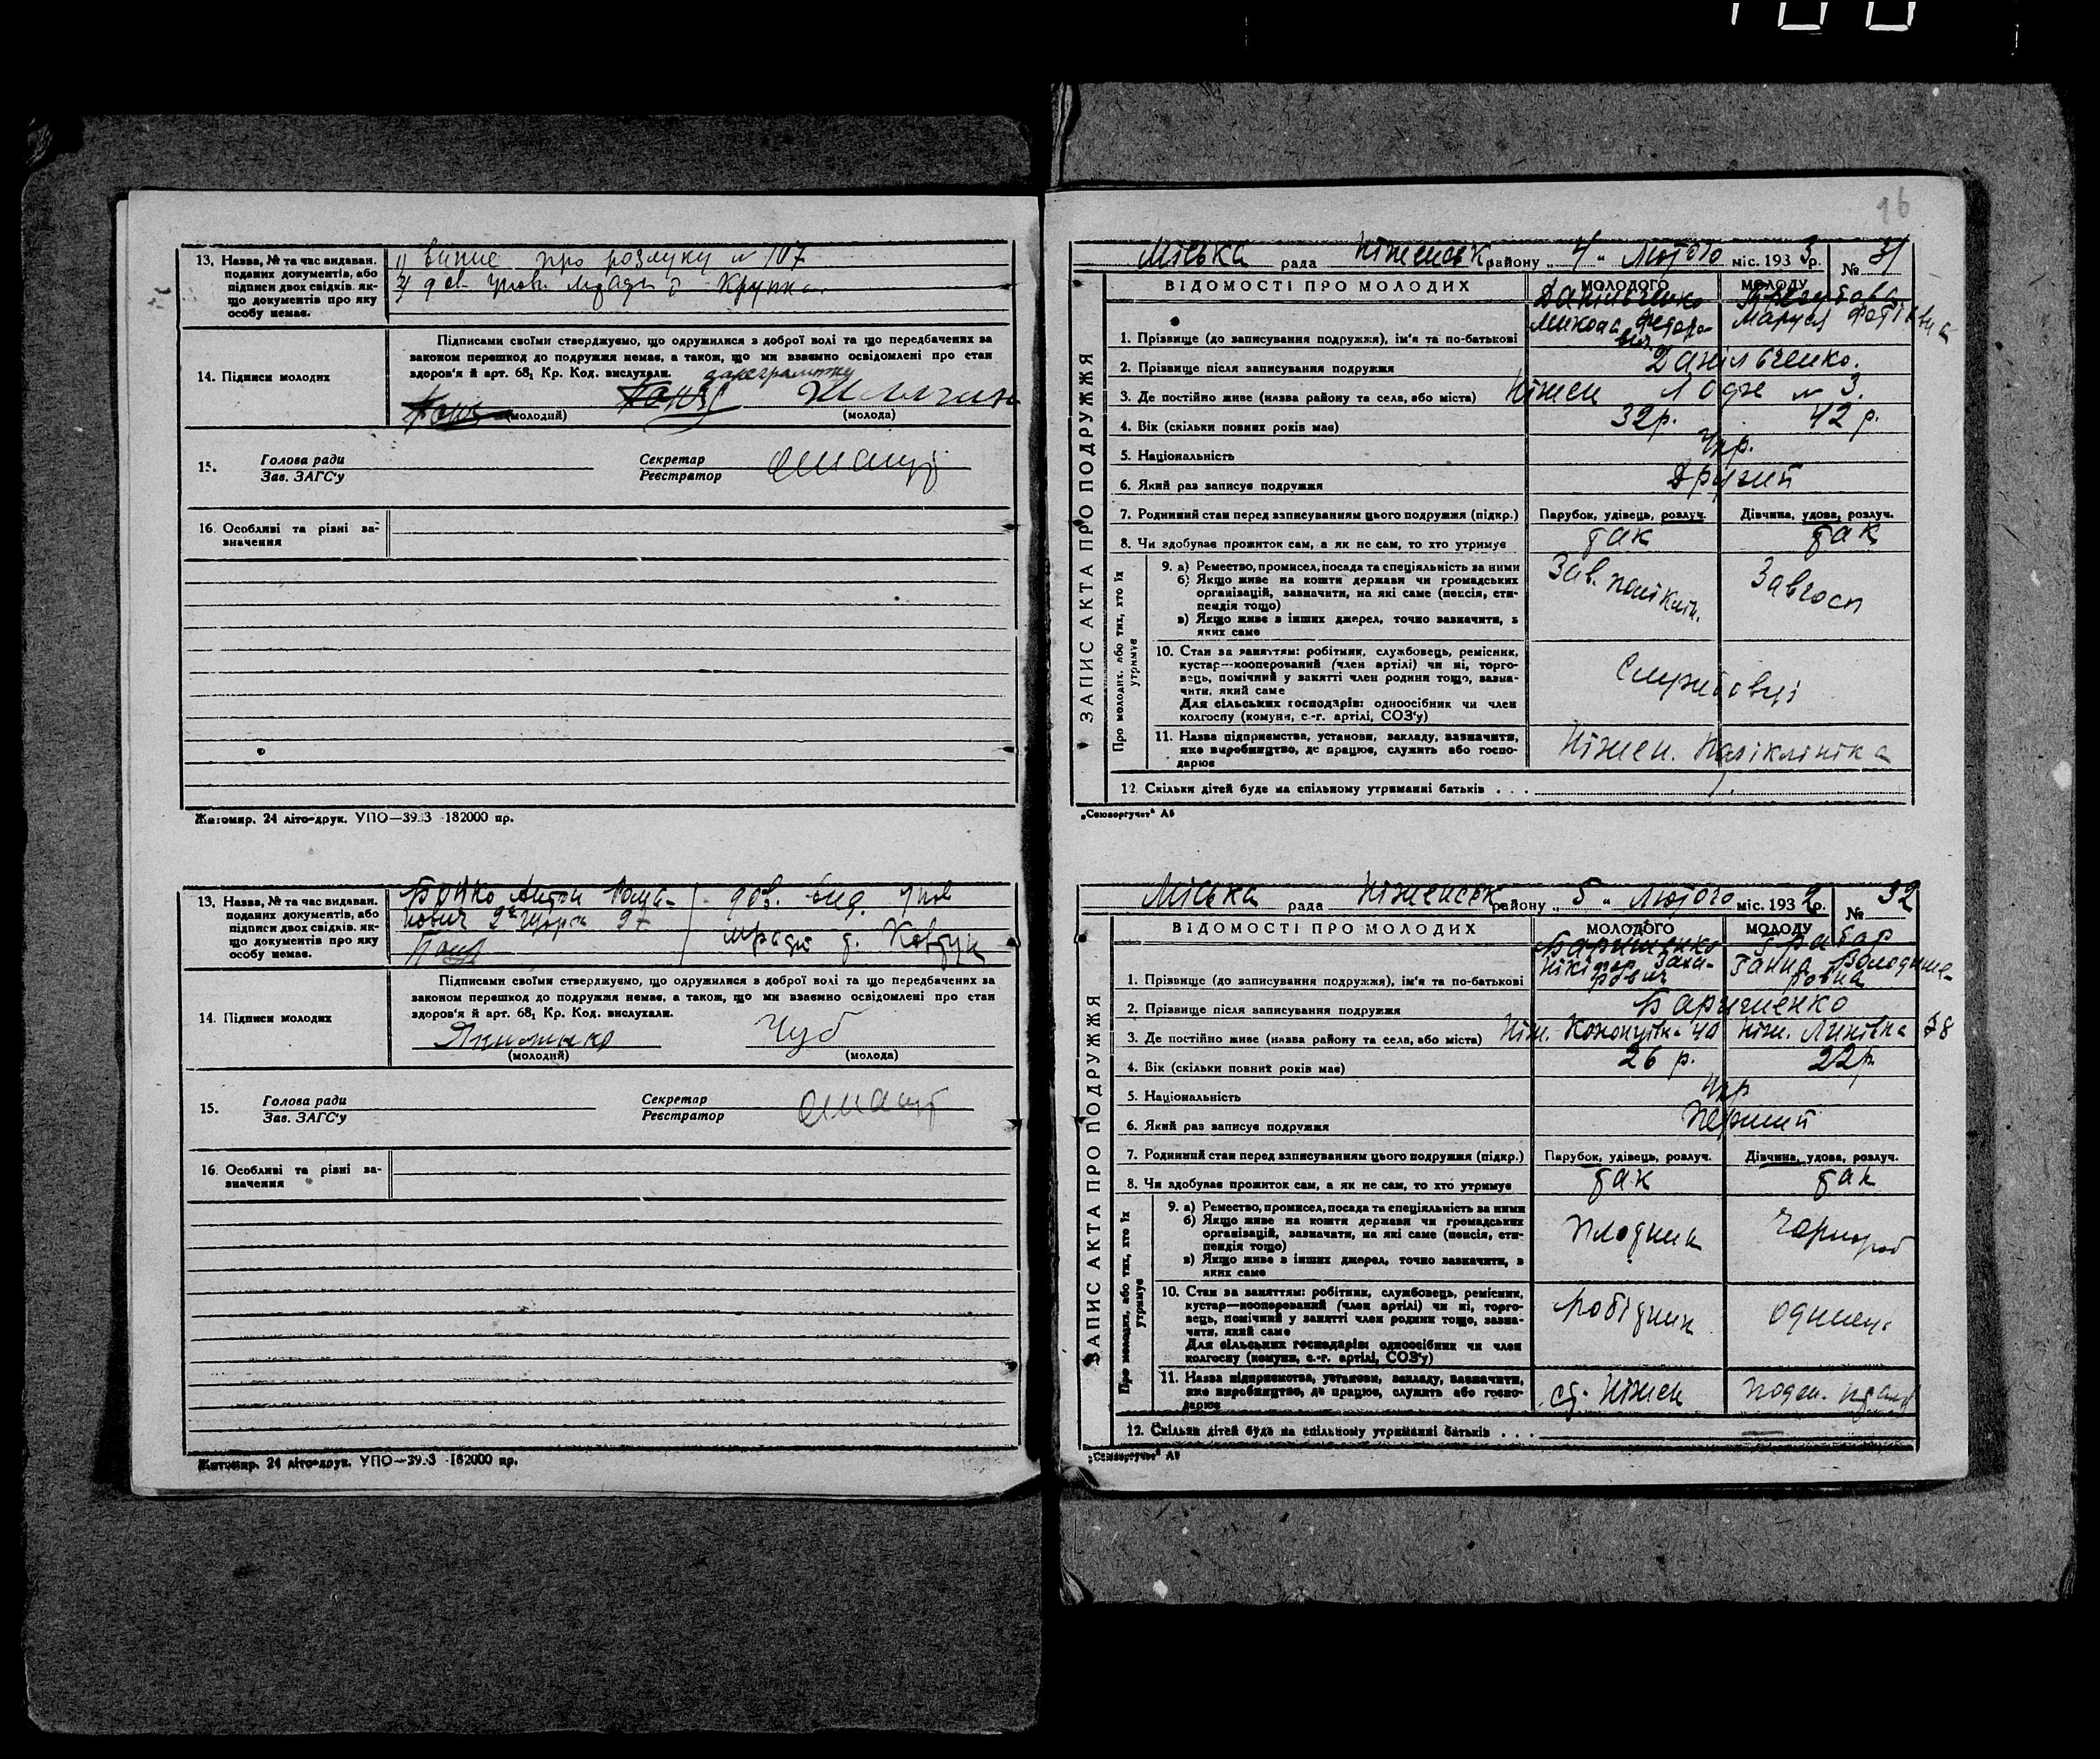 13. Назва, № та час видаван. поданих документів, або підписи двох свідків, якщо документів про яку особу немає.
1) випис про розлуку № 107
14. Підписи молодих
Підписами своїми стверджуємо, що одружилися з доброї волі та що передбачених за
законом перешкод до подружжя немає, а також, що ми взаємно освідомлені про стан
здоров'я й арт. 68₁ Кр. Код. вислухали.
(молодий) (молода)
15. Голова ради Секретар
Зав. ЗАГС'у Реєстратор
16. Особливі та різні зазначення
Житомир. 24 літо-друк. УПО—39.3 182000 пр.
13. Назва, № та час видаван. поданих документів, або підписи двох свідків, якщо документів про яку особу немає.
Бочко Антон
14. Підписи молодих
Підписами своїми стверджуємо, що одружилися з доброї волі та що передбачених за
законом перешкод до подружжя немає, а також, що ми взаємно освідомлені про стан
здоров'я й арт. 68₁ Кр. Код. вислухали.
Чуб
(молодий) (молода)
15. Голова ради Секретар
Зав. ЗАГС'у Реєстратор
16. Особливі та різні зазначення
Житомир. 24 літо-друк. УПО—39.3 182000 пр.
16
Міська рада Ніженськ району „4" Лютого міс. 1933р. № 31
ВІДОМОСТІ ПРО МОЛОДИХ МОЛОДОГО МОЛОДУ
ЗАПИС АКТА ПРО ПОДРУЖЖЯ
1. Прізвище (до записування подружжя), ім'я та по-батькові Данільченко Микола Федорович Маруся
2. Прізвище після записування подружжя Данільченко.
3. Де постійно живе (назва району та села, або міста) Ніжен № 3.
4. Вік (скільки повних років має) 32 р. 42 р.
5. Національність Укр.
6. Який раз записує подружжя Другий
7. Родинний стан перед записуванням цього подружжя (підкр.) Парубок, удівець, розлуч. Дівчина, удова, розлуч.
8. Чи здобуває прожиток сам, а як не сам, то хто утримує так так
Про молодих, або тих, хто їх утримує
9. а) Ремество, промисел, посада та спеціяльність за ними
б) Якщо живе на кошти держави чи громадських
організацій, зазначити, на які саме (пенсія, стипендія тощо)
в) Якщо живе з інших джерел, точно зазначити, з
яких саме
Зав. Завгосп
10. Стан за заняттям: робітник, службовець, ремісник,
кустар—кооперований (член артілі) чи ні, торговець, помічний у занятті член родини тощо, зазначити, який саме
Для сільських господарів: одноосібник чи член
колгоспу (комуни, с.-г. артілі, СОЗ'у)
Службовці
11. Назва підприємства, установи, закладу, зазначити,
яке виробництво, де працює, служить або господарює
Ніжен. Поліклініка
12. Скільки дітей буде на спільному утриманні батьків . . .
„Союзоргучет" А5
Міська рада Ніженськ району „5" Лютого міс. 193 р. № 32
ВІДОМОСТІ ПРО МОЛОДИХ МОЛОДОГО МОЛОДУ
ЗАПИС АКТА ПРО ПОДРУЖЖЯ
1. Прізвище (до записування подружжя), ім'я та по-батькові Нікіфор Захарович Ганна
2. Прізвище після записування подружжя
3. Де постійно живе (назва району та села, або міста) Ніж. 40 Ніж.
4. Вік (скільки повних років має) 26 р. 22 р.
5. Національність Укр
6. Який раз записує подружжя Перший
7. Родинний стан перед записуванням цього подружжя (підкр.) Парубок, удівець, розлуч. Дівчина, удова, розлуч.
8. Чи здобуває прожиток сам, а як не сам, то хто утримує так так
Про молодих, або тих, хто їх утримує
9. а) Ремество, промисел, посада та спеціяльність за ними
б) Якщо живе на кошти держави чи громадських
організацій, зазначити, на які саме (пенсія, стипендія тощо)
в) Якщо живе з інших джерел, точно зазначити, з
яких саме
Чорнороб
10. Стан за заняттям: робітник, службовець, ремісник,
кустар—кооперований (член артілі) чи ні, торговець, помічний у занятті член родини тощо, зазначити, який саме
Для сільських господарів: одноосібник чи член
колгоспу (комуни, с.-г. артілі, СОЗ'у)
Робітник
11. Назва підприємства, установи, закладу, зазначити,
яке виробництво, де працює, служить або господарює
ст. Ніжен
12. Скільки дітей буде на спільному утриманні батьків . . .
„Союзоргучет" А5